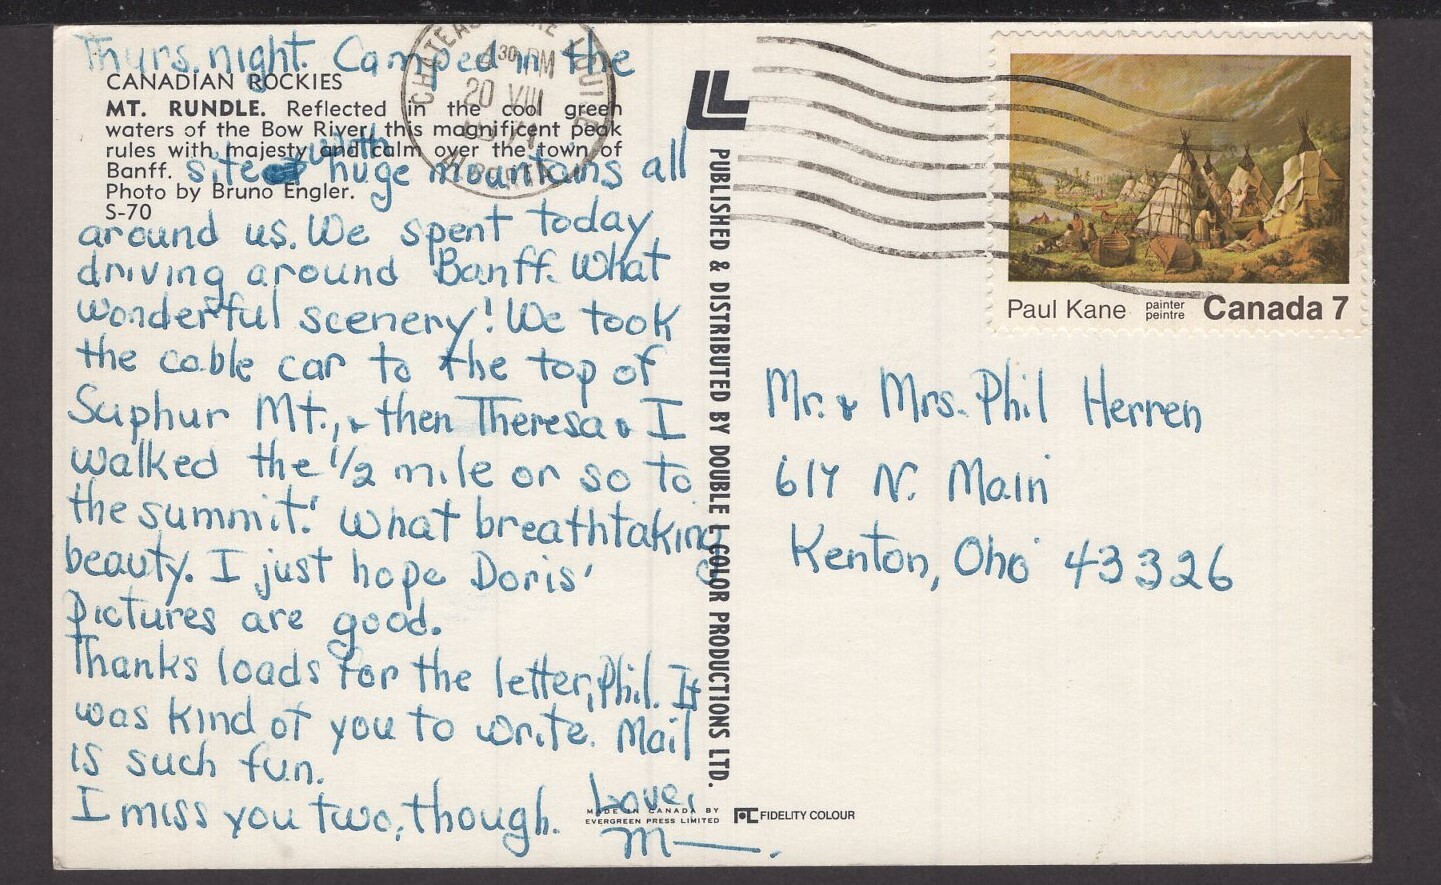 Thurs. night. Camped in the
CANADIAN ROCKIES
MT. RUNDLE. Reflected in the cool green
waters of the Bow River, this magnificent peak
rules with majesty and calm over the town of
Banff.
Photo by Bruno Engler.
S-70
site with huge mountains all
around us. We spent today
driving around Banff. What
wonderful scenery! We took
the cable car to the top of
Suphur Mt., & then Theresa & I
walked the 1/2 mile or so to
the summit! What breathtaking
beauty. I just hope Doris'
pictures are good.
Thanks loads for the letter, Phil. It
was kind of you to write. Mail
is such fun.
I miss you two, though. Love,
M—.
MADE IN CANADA BY
EVERGREEN PRESS LIMITED
PUBLISHED & DISTRIBUTED BY DOUBLE L COLOR PRODUCTIONS LTD.
FIDELITY COLOUR
CHATEAU LAKE LOUISE
30 PM
20 VIII
ALBERTA
Paul Kane painter
peintre Canada 7
Mr. & Mrs. Phil Herren
617 N. Main
Kenton, Oho 43326